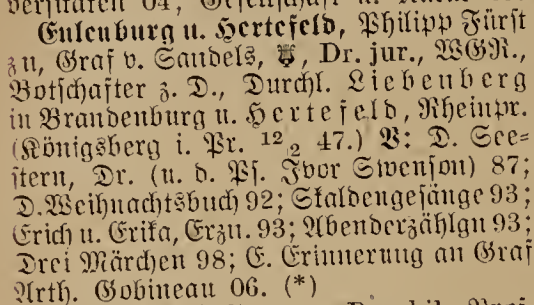 Eulenburg u. Hertefeld, Philipp Fürst
zu, Graf v. Sandels, Dr. jur., WGR.,
Botschafter z. D., Durchl. Liebenberg
in Brandenburg u. Hertefeld, Rheinpr.
(Königsberg i. Pr. 12/2 47.) V: D. See-
stern, Dr. (u. d. Ps. Ivor Svenson) 87;
D. Weihnachtsbuch 92; Skaldengesänge 93;
Erich u. Erika, Erzn. 93; Abenderzählgn 93;
Drei Märchen 98; E. Erinnerung an Graf
Arth. Gobineau 06. (*)